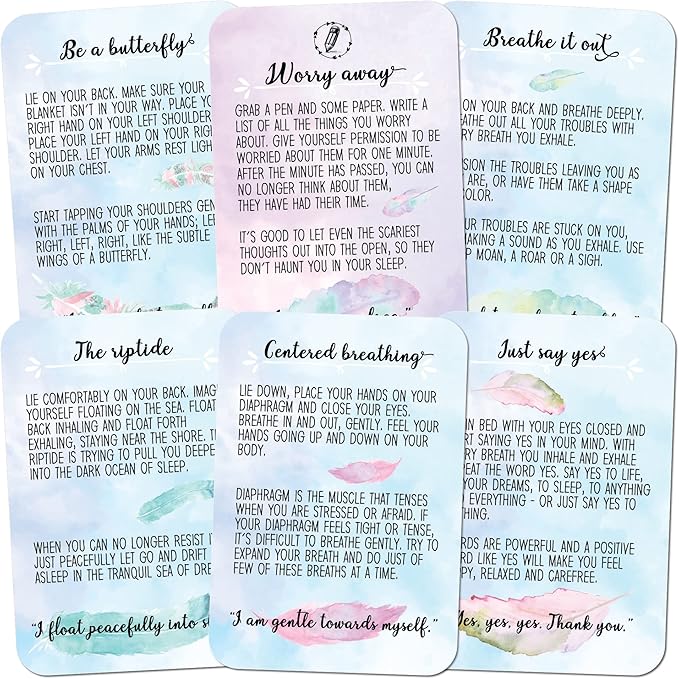 Be a butterfly
LIE ON YOUR BACK. MAKE SURE YOUR
BLANKET ISN'T IN YOUR WAY. PLACE YO
RIGHT HAND ON YOUR LEFT SHOULDER
PLACE YOUR LEFT HAND ON YOUR RIG
SHOULDER. LET YOUR ARMS REST LIGH
ON YOUR CHEST.
START TAPPING YOUR SHOULDERS GEN
WITH THE PALMS OF YOUR HANDS; LE
RIGHT, LEFT, RIGHT, LIKE THE SUBTLE
WINGS OF A BUTTERFLY.
Worry away
GRAB A PEN AND SOME PAPER. WRITE A
LIST OF ALL THE THINGS YOU WORRY
ABOUT. GIVE YOURSELF PERMISSION TO BE
WORRIED ABOUT THEM FOR ONE MINUTE.
AFTER THE MINUTE HAS PASSED, YOU CAN
NO LONGER THINK ABOUT THEM,
THEY HAVE HAD THEIR TIME.
IT'S GOOD TO LET EVEN THE SCARIEST
THOUGHTS OUT INTO THE OPEN, SO THEY
DON'T HAUNT YOU IN YOUR SLEEP.
Breathe it out
ON YOUR BACK AND BREATHE DEEPLY.
EATHE OUT ALL YOUR TROUBLES WITH
RY BREATH YOU EXHALE.
SION THE TROUBLES LEAVING YOU AS
ARE, OR HAVE THEM TAKE A SHAPE
COLOR.
UR TROUBLES ARE STUCK ON YOU,
MAKING A SOUND AS YOU EXHALE. USE
P MOAN, A ROAR OR A SIGH.
The riptide
LIE COMFORTABLY ON YOUR BACK. IMAG
YOURSELF FLOATING ON THE SEA. FLOAT
BACK INHALING AND FLOAT FORTH
EXHALING, STAYING NEAR THE SHORE. T
RIPTIDE IS TRYING TO PULL YOU DEEPE
INTO THE DARK OCEAN OF SLEEP.
WHEN YOU CAN NO LONGER RESIST I
JUST PEACEFULLY LET GO AND DRIFT
ASLEEP IN THE TRANQUIL SEA OF DRE
"I float peacefully into s
Centered breathing
LIE DOWN, PLACE YOUR HANDS ON YOUR
DIAPHRAGM AND CLOSE YOUR EYES.
BREATHE IN AND OUT, GENTLY. FEEL YOUR
HANDS GOING UP AND DOWN ON YOUR
BODY.
DIAPHRAGM IS THE MUSCLE THAT TENSES
WHEN YOU ARE STRESSED OR AFRAID. IF
YOUR DIAPHRAGM FEELS TIGHT OR TENSE,
IT'S DIFFICULT TO BREATHE GENTLY. TRY TO
EXPAND YOUR BREATH AND DO JUST OF
FEW OF THESE BREATHS AT A TIME.
"I am gentle towards myself."
Just say yes
IN BED WITH YOUR EYES CLOSED AND
RT SAYING YES IN YOUR MIND. WITH
RY BREATH YOU INHALE AND EXHALE
EAT THE WORD YES. SAY YES TO LIFE,
YOUR DREAMS, TO SLEEP, TO ANYTHING
EVERYTHING - OR JUST SAY YES TO
THING.
RDS ARE POWERFUL AND A POSITIVE
RD LIKE YES WILL MAKE YOU FEEL
PY, RELAXED AND CAREFREE.
Yes, yes, yes. Thank you."